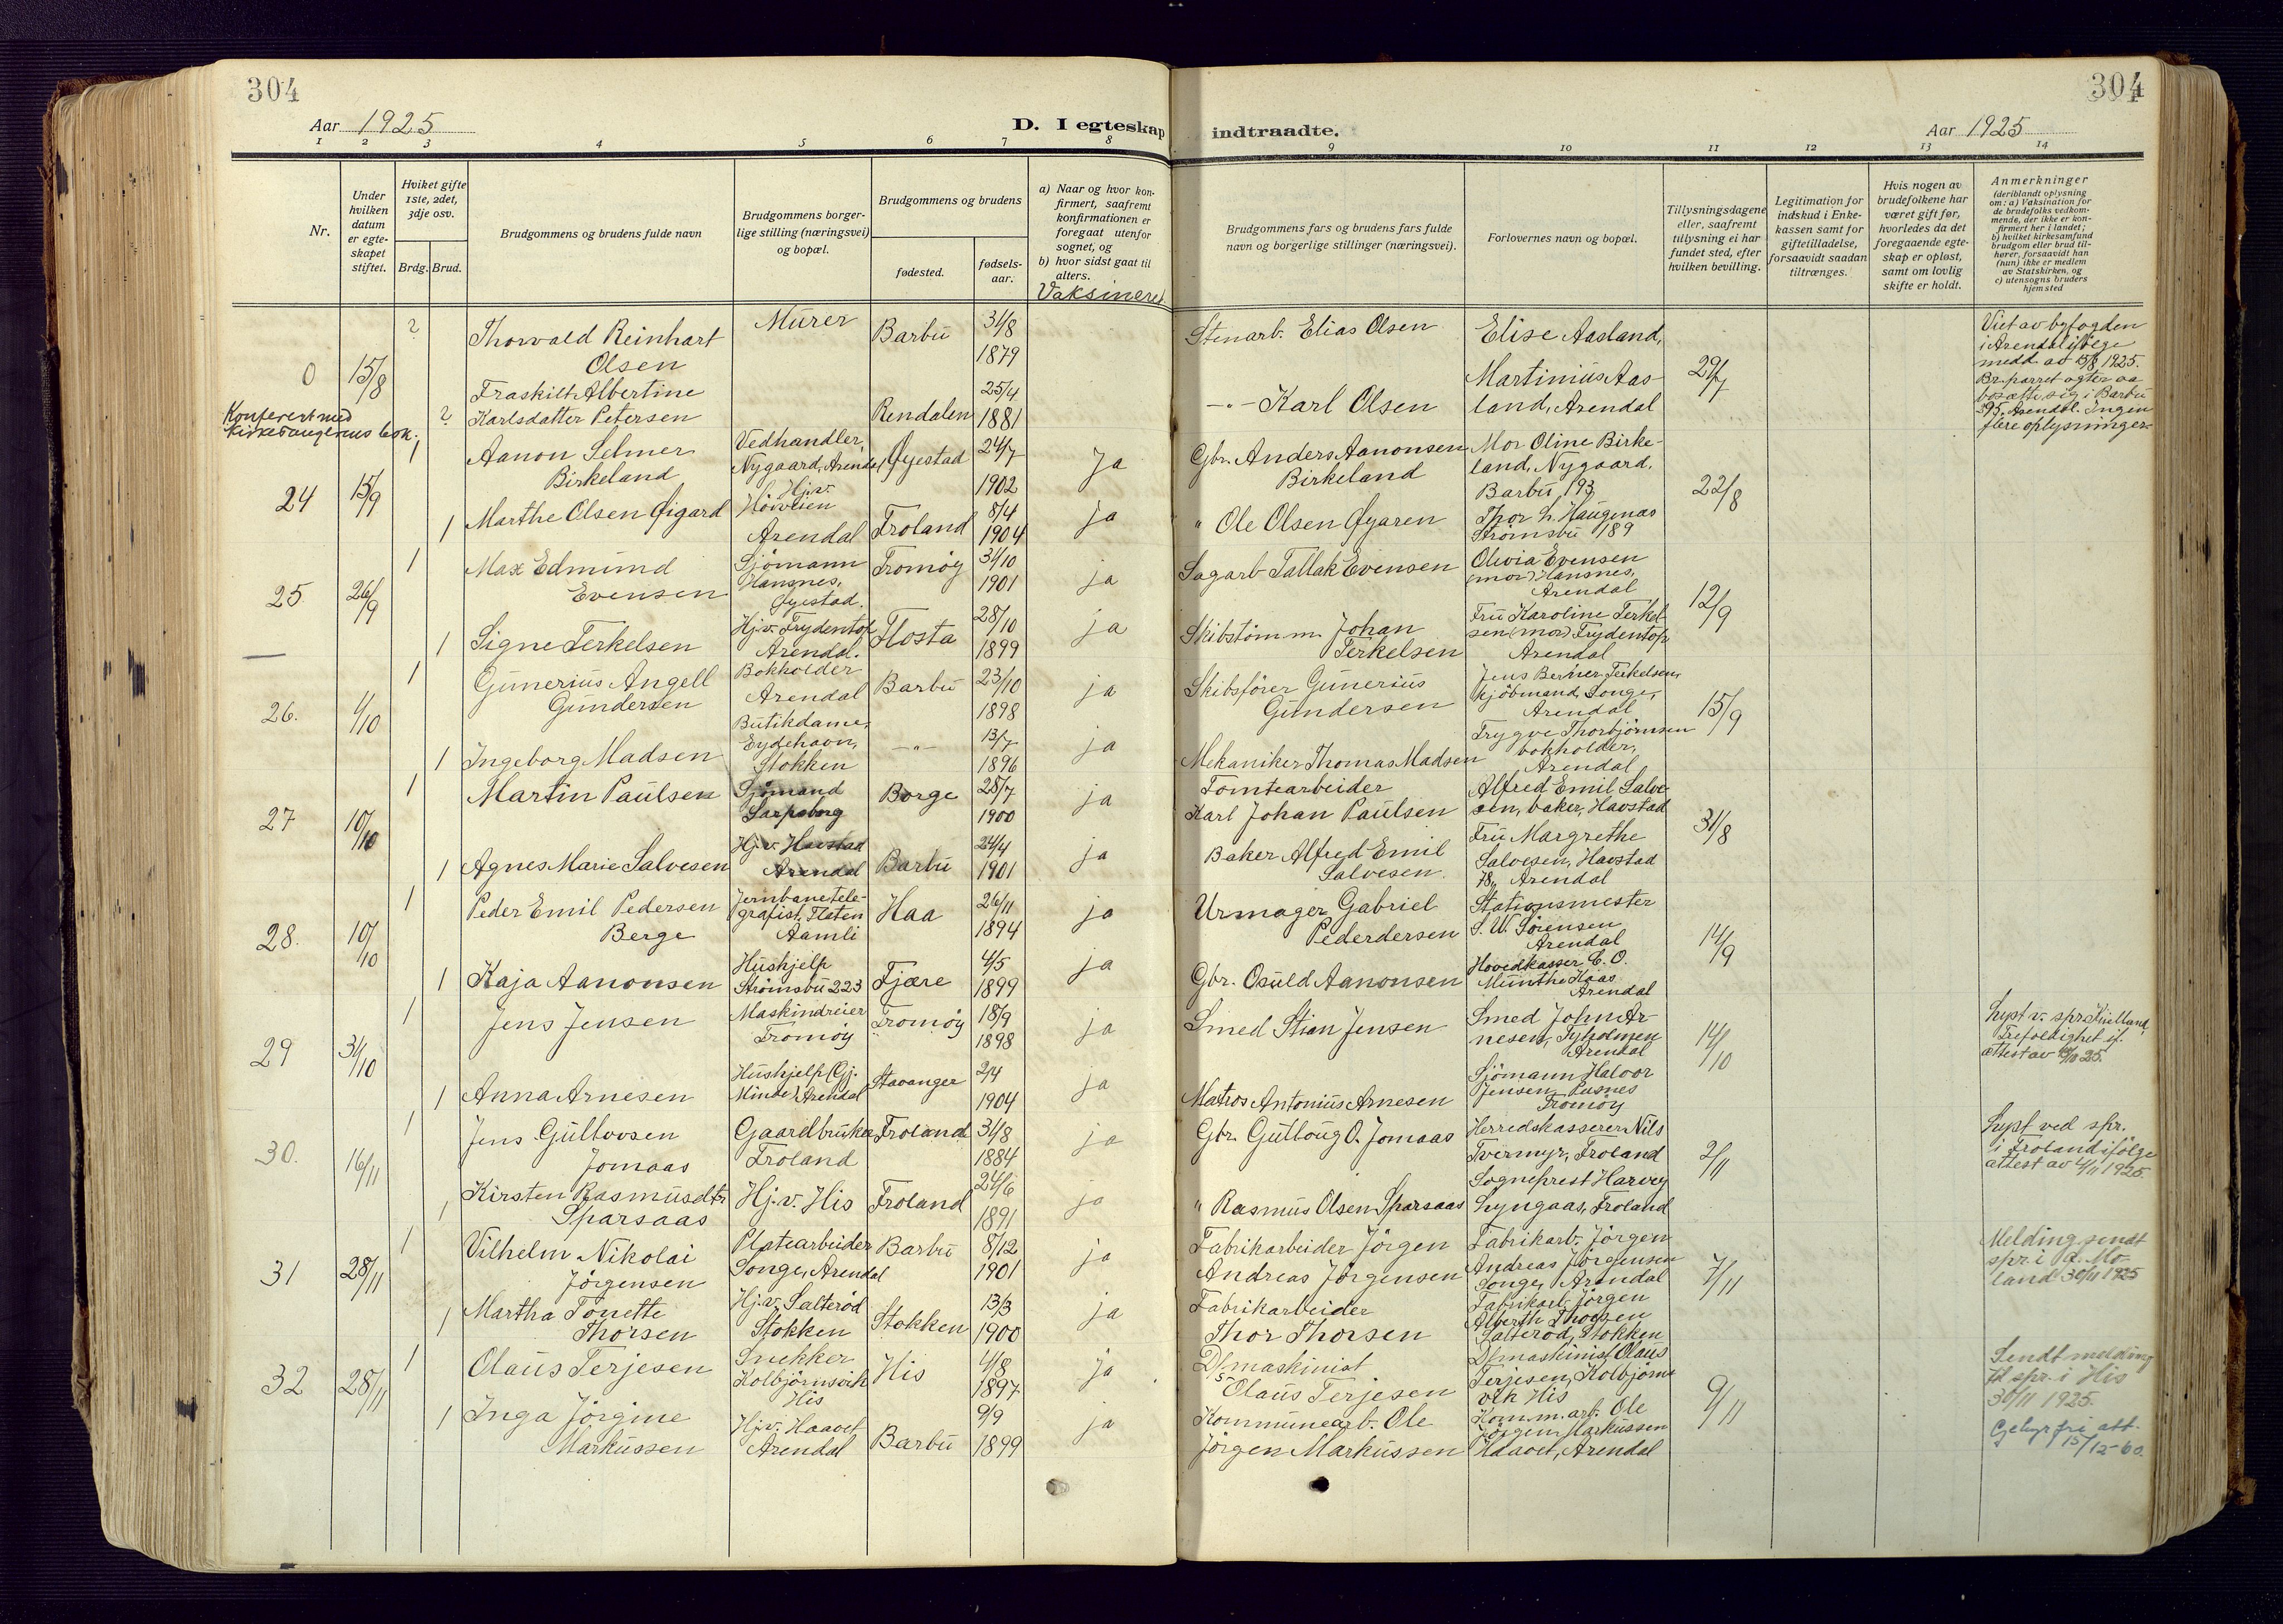 304
304
Aar 1925
D. I egteskap indtraadte.
Aar 1925
1 2 3 4 5 6 7 8 9 10 11 12 13 14
Nr.
Under hvilken datum er egteskapet stiftet.
Hviket gifte 1ste, 2det, 3dje osv.
Brdg. Brud.
Brudgommens og brudens fulde navn
Brudgommens borgerlige stilling (næringsvei) og bopæl.
Brudgommens og brudens
fødested.
fødselsaar.
a) Naar og hvor konfirmert, saafremt konfirmationen er foregaat utenfor sognet, og
b) hvor sidst gaat til alters.
Vaksineret.
Brudgommens fars og brudens fars fulde navn og borgerlige stillinger (næringsvei).
Forlovernes navn og bopæl.
Tillysningsdagene eller, saafremt tillysning ei har fundet sted, efter hvilken bevilling.
Legitimation for indskud i Enkekassen samt for giftetilladelse, forsaavidt saadan tiltrænges.
Hvis nogen av brudefolkene har været gift før, hvorledes da det foregaaende egteskap er opløst, samt om lovlig skifte er holdt.
Anmerkninger
(deriblandt oplysning om: a) Vaksination for de brudefolks vedkommende, der ikke er konfirmert her i landet;
b) hvilket kirkesamfund brudgom eller brud tilhører, forsaavidt han (hun) ikke er medlem av Statskirken, og
c) utensogns bruders hjemsted
0 15/8 2 Thorvald Reinhart Olsen Murer Barbu 31/8 1879 Stenarb. Elias Olsen Elise Aasland,
2 Fraskilt Albertine Karlsdatter Petersen Rendalen 25/4 1881 -"- Karl Olsen Martinius Aasland, Arendal 29/7
Viet av byfogden i Arendal ifølge medd. av 15/8 1925. Br.parret agter aa bosætte sig i Barbu 95, Arendal. Ingen flere oplysninger.
Konferert med
24 15/9 1 Aanon Selmer Birkeland Vedhandler Nygaard, Arendal Øyestad 24/7 1902 Ja Gbr. Anders Aanonsen Birkeland Mor Oline Birkeland, Nygaard, Barbu 193 22/8
1 Marthe Olsen Øigard Hj.v. Arendal Froland 8/4 1904 ja " Ole Olsen Øyaren Thor L. Haugenæs Strømsbu 189
25. 26/9 1 Max Edmund Evensen Sjømann Hansnes, Øyestad. Tromøy 31/10 1901 ja Sagarb. Tallak Evensen Olivia Evensen (mor) Hansnes, Arendal 12/9
1 Signe Terkelsen Hj.v. Frydentop Arendal. Flosta 28/10 1899 ja Skibstømm. Johan Terkelsen Fru Karoline Terkelsen (mor) Frydentop, Arendal
26. 1/10 1 Gunerius Angell Gundersen Bokholder Arendal Barbu 23/10 1898 ja Skibsfører Gunerius Gundersen Jens Berner Terkelsen, kjøbmand, Songe, Arendal 15/9
1 Ingeborg Madsen Butikdame, Eydehavn, Stokken -"- 13/7 1896 ja Mekaniker Thomas Madsen Trygve Thorbjørnsen bokholder, Arendal
27 10/10 1 Martin Paulsen Sjømand Sarpsborg Borge 28/7 1900 ja Tomtearbeider Karl Johan Paulsen Alfred Emil Salvesen, baker, Havstad 31/8
1 Agnes Marie Salvesen Hj.v. Havstad Arendal Barbu 24/4 1901 ja Baker Alfred Emil Salvesen. Fru Margrethe Salvesen, Havstad 78, Arendal
28. 10/10 1 Peder Emil Pedersen Berge Jernbanetelegrafist, Flaten Aamli Haa 26/11 1894 ja Urmager Gabriel Pederdersen Stationsmester S. W. Sørensen Arendal 14/9
1 Kaja Aanonsen Hushjelp Strømsbu 223 Fjære 4/5 1899 ja Gbr. Osuld Aanonsen Hovedkasser C. O. Munthe Kaas Arendal
29 31/10 1 Jens Jensen Maskindreier Tromøy Tromøy 18/9 1898 ja Smed Stian Jensen Smed John Arnesen, Tyholmen Arendal 14/10
Lyst v. spr. Kielland, Trefoldighet if. attest av 25.
1 Anna Arnesen Hushjelp (Gj. Minde) Arendal Stavanger 2/4 1904 ja Matros Antonius Arnesen Sjømann Halvor Jensen, Pusnes Tromøy
30. 16/11 1 Jens Gullovsen Jomaas Gaardbruker Froland Froland 31/8 1884 ja Gbr. Gulloug O. Jomaas Herredskasserer Nils Tveimyr, Froland 2/11
Lyst ved spr. i Froland ifølge attest av 4/11 1925.
1 Kirsten Rasmusdtr. Sparsaas Hj.v. His Froland 24/6 1891 ja " Rasmus Olsen Sparsaas Sogneprest Harvey Lyngaas, Froland
31 28/11 1 Vilhelm Nikolai Jørgensen Platearbeider Songe, Arendal Barbu 8/12 1901 ja Fabrikarbeider Jørgen Andreas Jørgensen Fabrikarb. Jørgen Andreas Jørgensen Songe, Arendal 7/11
Melding sendt spr. i A. Moland 30/11 1925
1 Martha Tonette Thorsen Hj.v. Salterød Stokken Stokken 13/3 1900 ja Fabrikarbeider Thor Thorsen Fabrikarb. Jørgen Alberth Thorsen Salterød, Stokken
32 28/11 1 Olaus Terjesen Snekker Kolbjørnsvik His His 4/8 1897 ja D/s maskinist Olaus Terjesen D/s maskinist Olaus Terjesen, Kolbjørnsvik His 9/11
Sendt melding til spr. i His 30/11 1925.
1 Inga Jørgine Markussen Hj.v. Haavet, Arendal Barbu 9/9 1899 ja Kommunearb. Ole Jørgen Markussen Komm. arb. Ole Jørgen Markussen Haavet, Arendal
Gebyrfri att. 15/12-60.